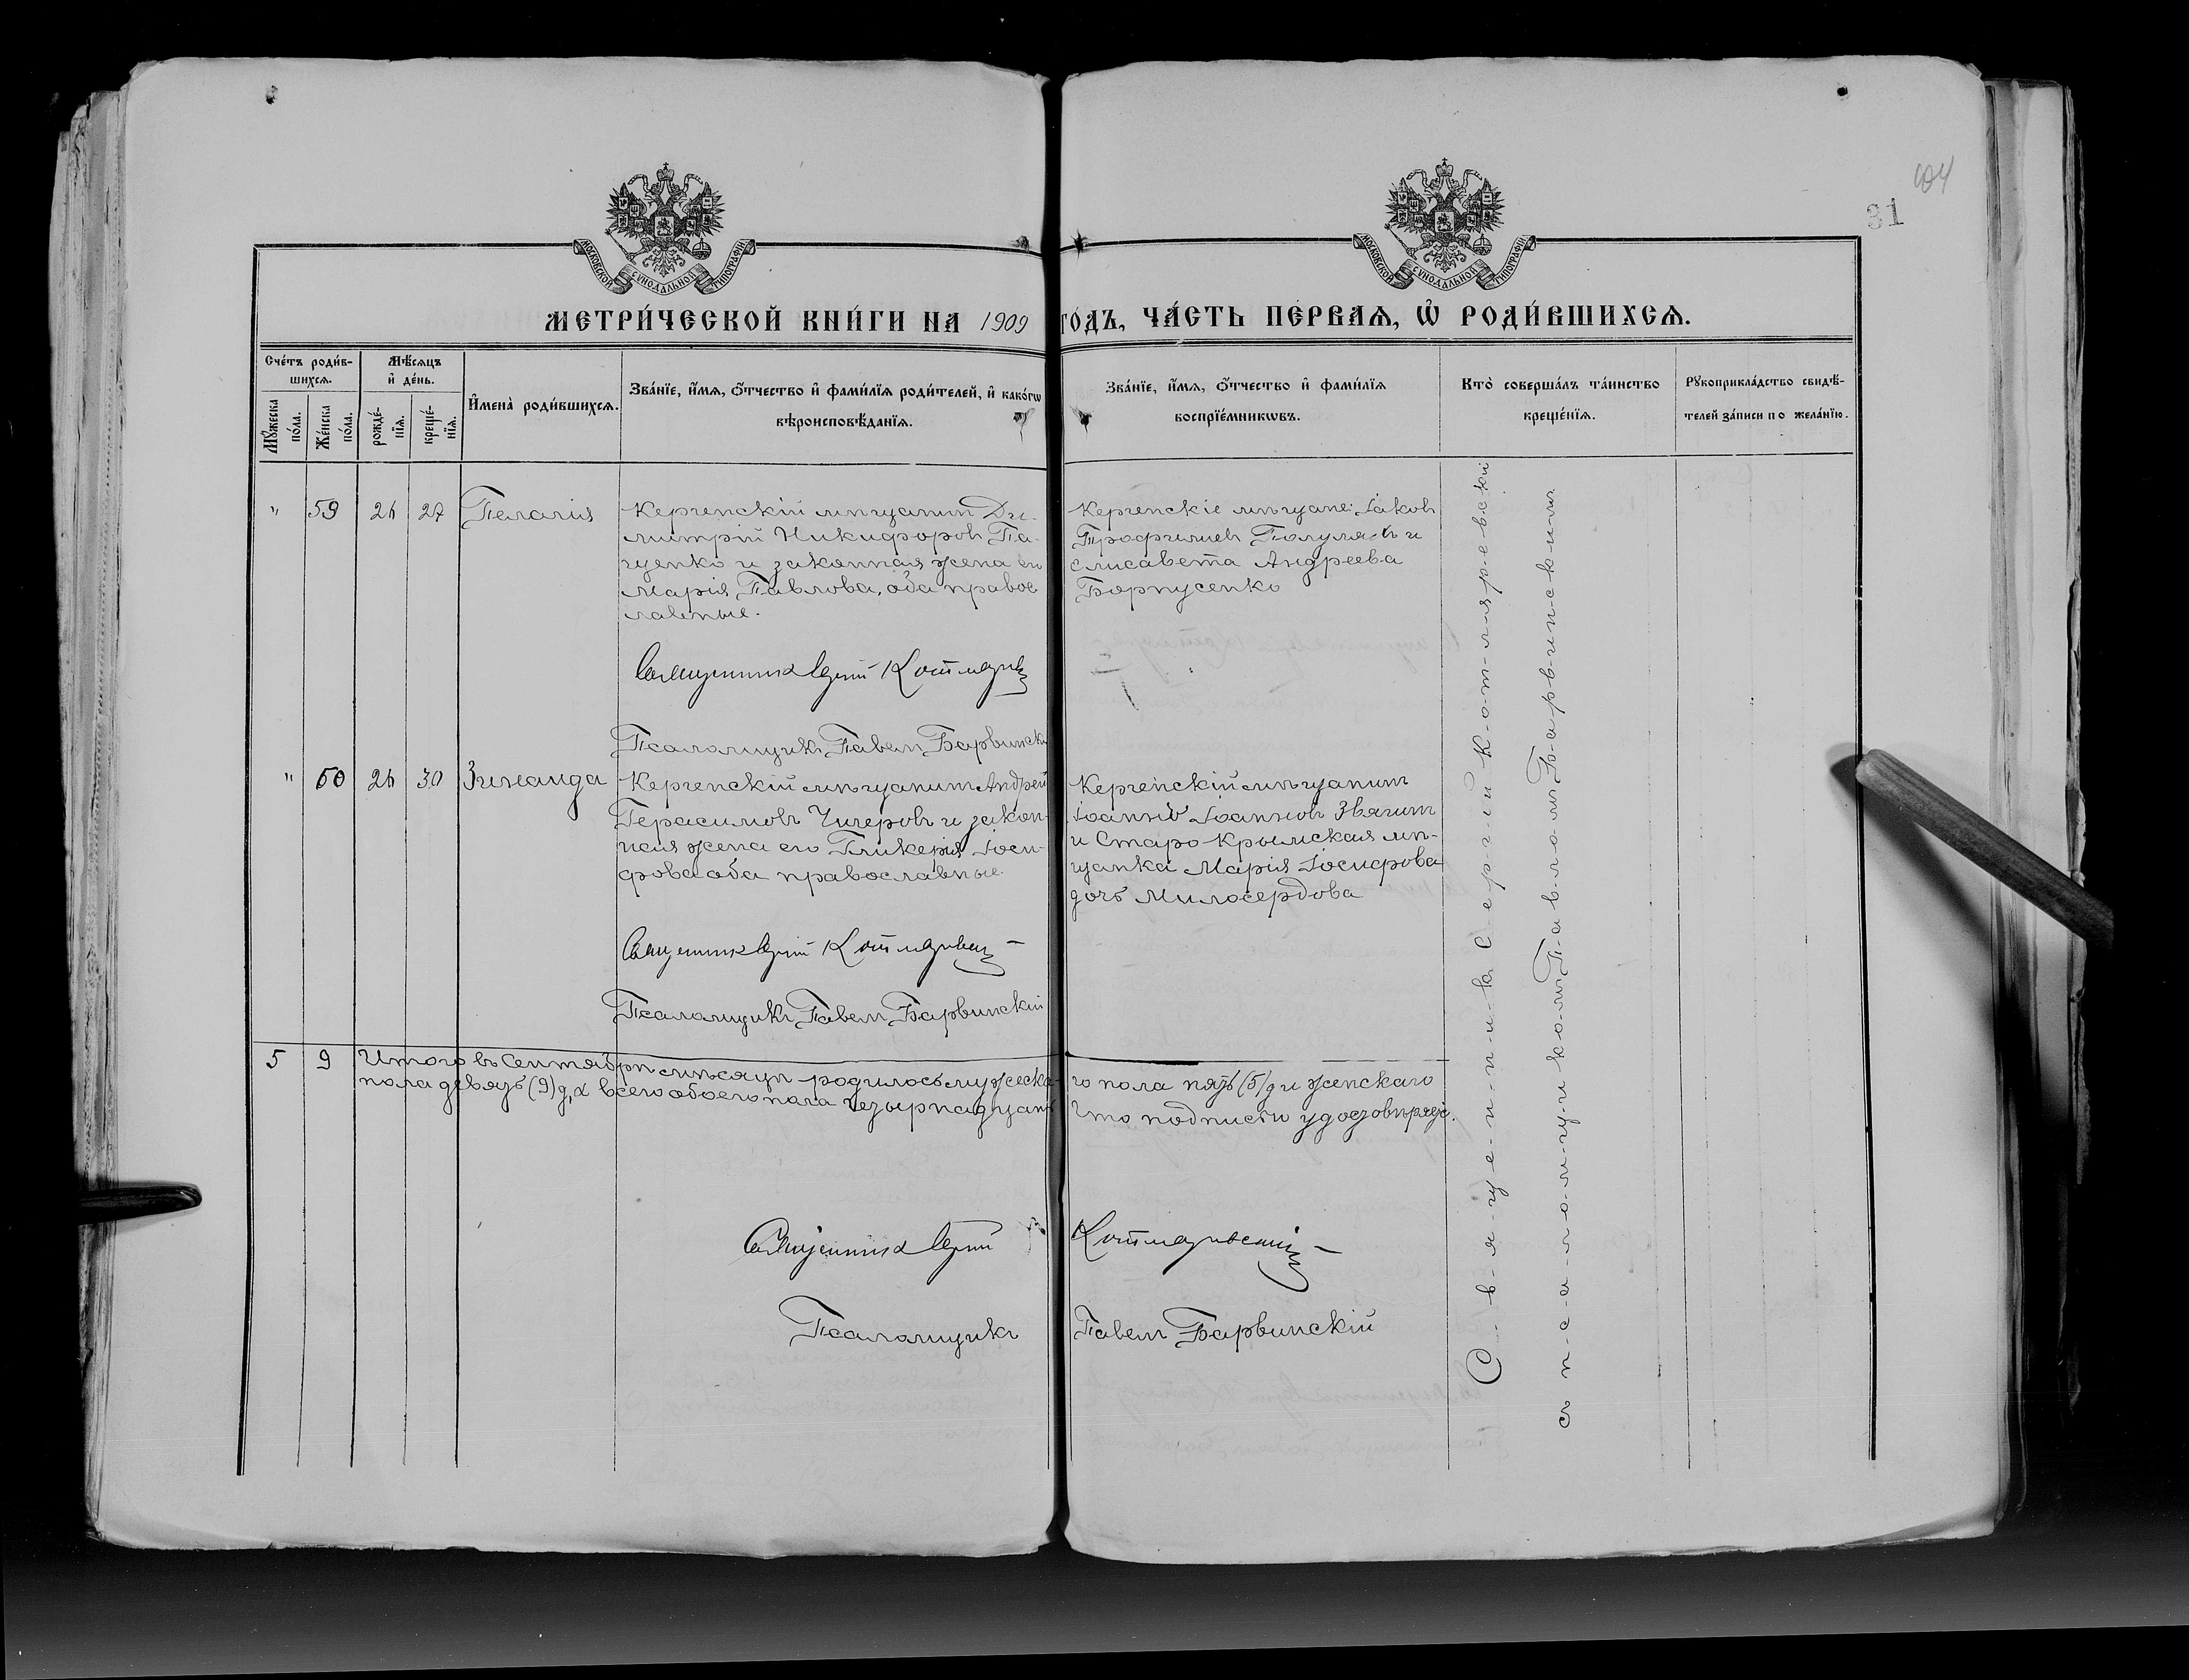 104
31
МОСКОВСКОЙ СѴНОДАЛЬНОЙ ТИПОГРАФІИ
МОСКОВСКОЙ СѴНОДАЛЬНОЙ ТИПОГРАФІИ
МЕТРИ́ЧЕСКОЙ КНИ́ГИ НА 1909 ГО́ДЪ, ЧА́СТЬ ПЕ́РВАѦ, Ѡ҆ РОДИ́ВШИХСѦ.
Сче́тъ роди́в-
шихсѧ.
Мѣ́сѧцъ
и҆ де́нь.
Мꙋ́жеска
по́ла.
Же́нска
по́ла.
рожде́-
нїѧ.
креще́-
нїѧ.
И҆мена̀ роди́вшихсѧ.
Зва́нїе, и҆́мѧ, ѻ҆́тчество и҆ фами́лїѧ роди́телей, и҆ како́гѡ
вѣроисповѣ́данїѧ.
Зва́нїе, и҆́мѧ, ѻ҆́тчество и҆ фами́лїѧ
воспрїе́мникѡвъ.
Кто̀ соверша́лъ та́инство
креще́нїѧ.
Рꙋкоприкла́дство свидѣ́-
телей за́писи по жела́нїю.
" 59 26 27 Пелагія
Керченскій мѣщанинъ Ди-
митрій Никифоровъ Па-
щенко и законная жена его
Марія Павлова, оба правос
лавные.
Священникъ Сергій Котляревскій
Псаломщикъ Павелъ Барвинскій
Керченскіе мѣщане: Іаковъ
Трофимовъ и
Елисавета Андреева
Борпусенко
" 60 26 30 Зинаида
Керченскій мѣщанинъ Андрей
Герасимовъ Чичеровъ и закон-
ная жена его Гликерія Іоси-
фова оба православные.
Священникъ Сергій Котляревскій
Псаломщикъ Павелъ Барвинскій
Керченскій мѣщанинъ
Іоаннъ Іоанновъ Звягинъ
и Старо Крымская мѣ-
щанка Марія Іосифова
дочь Милосердова
Священникъ Сергій Котляревскій
съ псаломщикомъ Павломъ Барвинскимъ
5 9 Итого въ Сентябрѣ мѣсяцѣ родилось мужеска-
го пола пять (5) д и женскаго
пола девять (9) д, а всего обоего пола четырнадцать
Что подписью удостовѣряемъ.
Священникъ Сергій Котляревскій
Псаломщикъ Павелъ Барвинскій